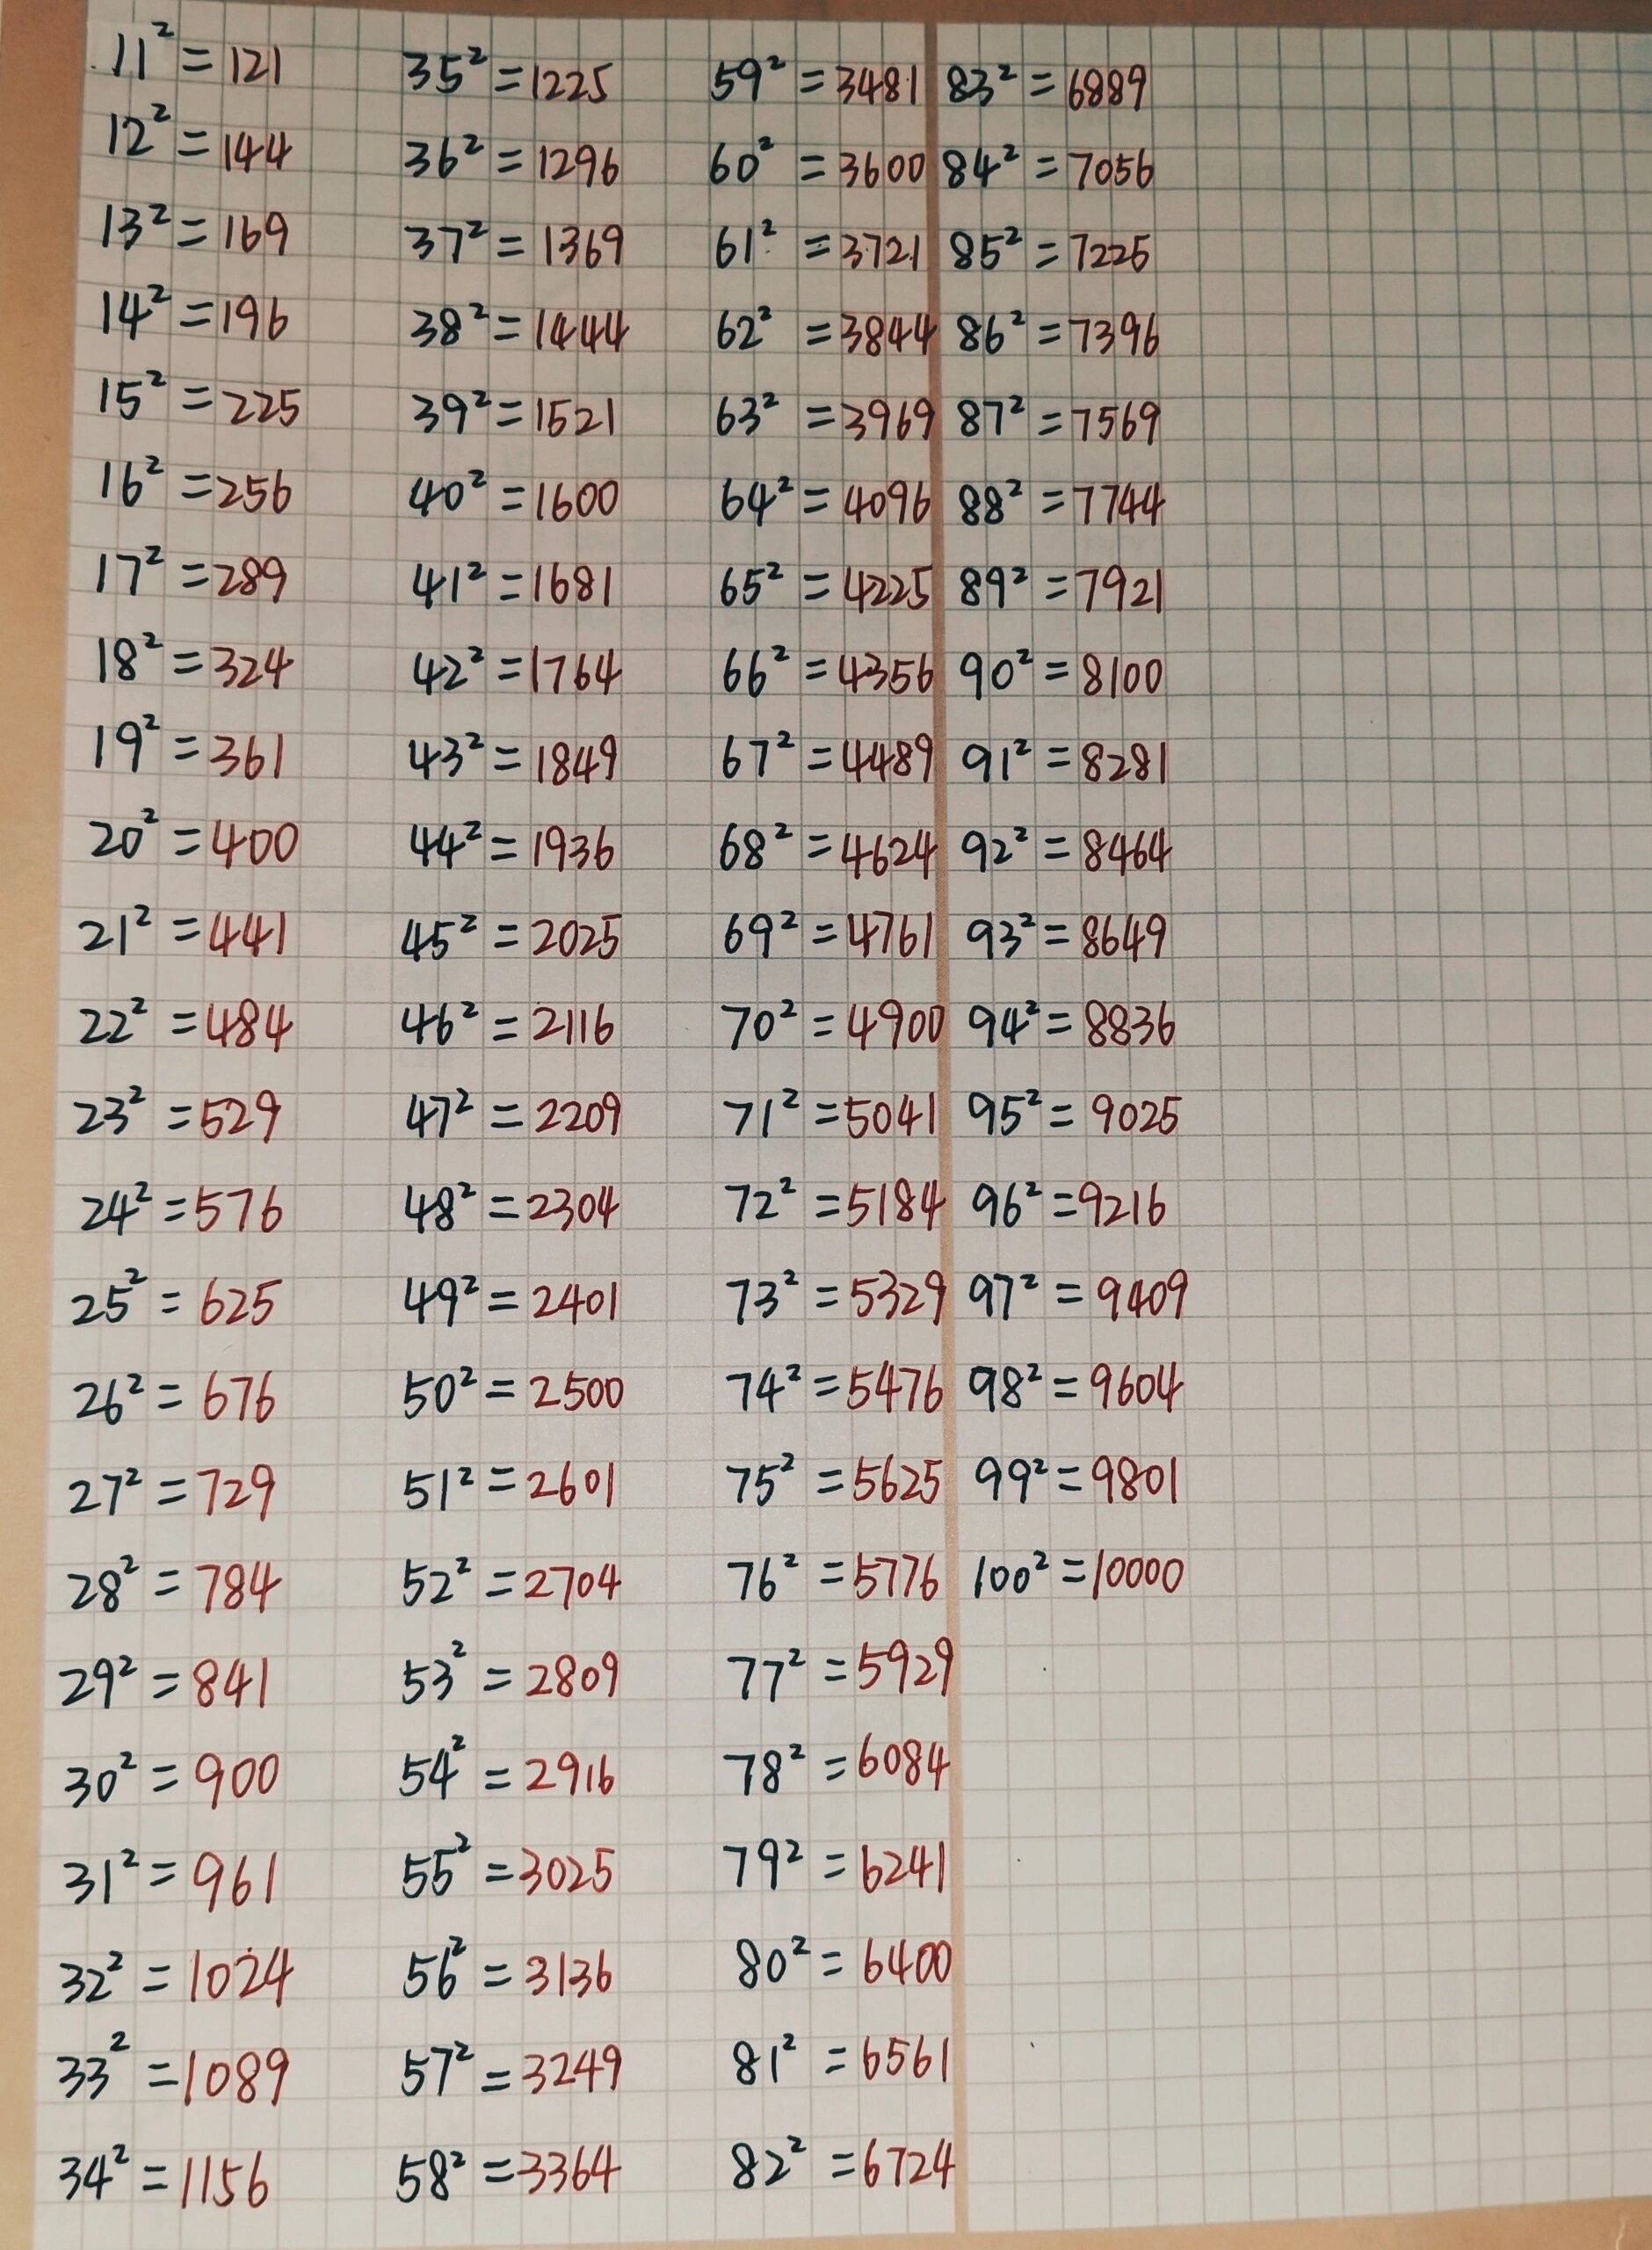 11²=121
12²=144
13²=169
14²=196
15²=225
16²=256
17²=289
18²=324
19²=361
20²=400
21²=441
22²=484
23²=529
24²=576
25²=625
26²=676
27²=729
28²=784
29²=841
30²=900
31²=961
32²=1024
33²=1089
34²=1156
35²=1225
36²=1296
37²=1369
38²=1444
39²=1521
40²=1600
41²=1681
42²=1764
43²=1849
44²=1936
45²=2025
46²=2116
47²=2209
48²=2304
49²=2401
50²=2500
51²=2601
52²=2704
53²=2809
54²=2916
55²=3025
56²=3136
57²=3249
58²=3364
59²=3481
60²=3600
61²=3721
62²=3844
63²=3969
64²=4096
65²=4225
66²=4356
67²=4489
68²=4624
69²=4761
70²=4900
71²=5041
72²=5184
73²=5329
74²=5476
75²=5625
76²=5776
77²=5929
78²=6084
79²=6241
80²=6400
81²=6561
82²=6724
83²=6889
84²=7056
85²=7225
86²=7396
87²=7569
88²=7744
89²=7921
90²=8100
91²=8281
92²=8464
93²=8649
94²=8836
95²=9025
96²=9216
97²=9409
98²=9604
99²=9801
100²=10000